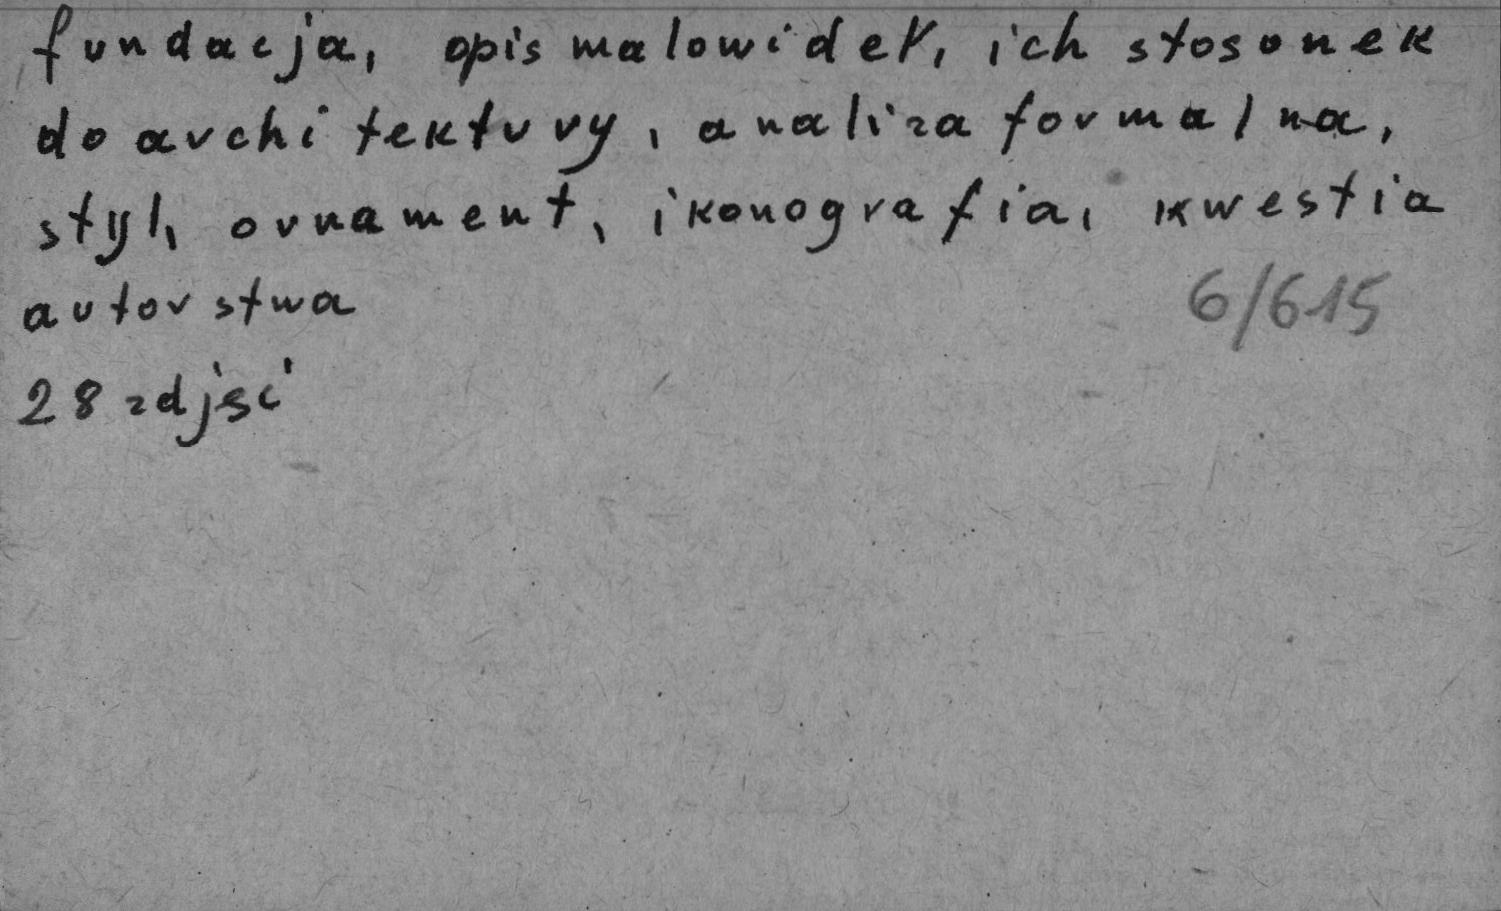 fundacja, opis malowideł, ich stosonek
do architektury, analiza formalna,
styl, ornament, ikonografia, kwestia
autorstwa
6/615
28 zdjęć